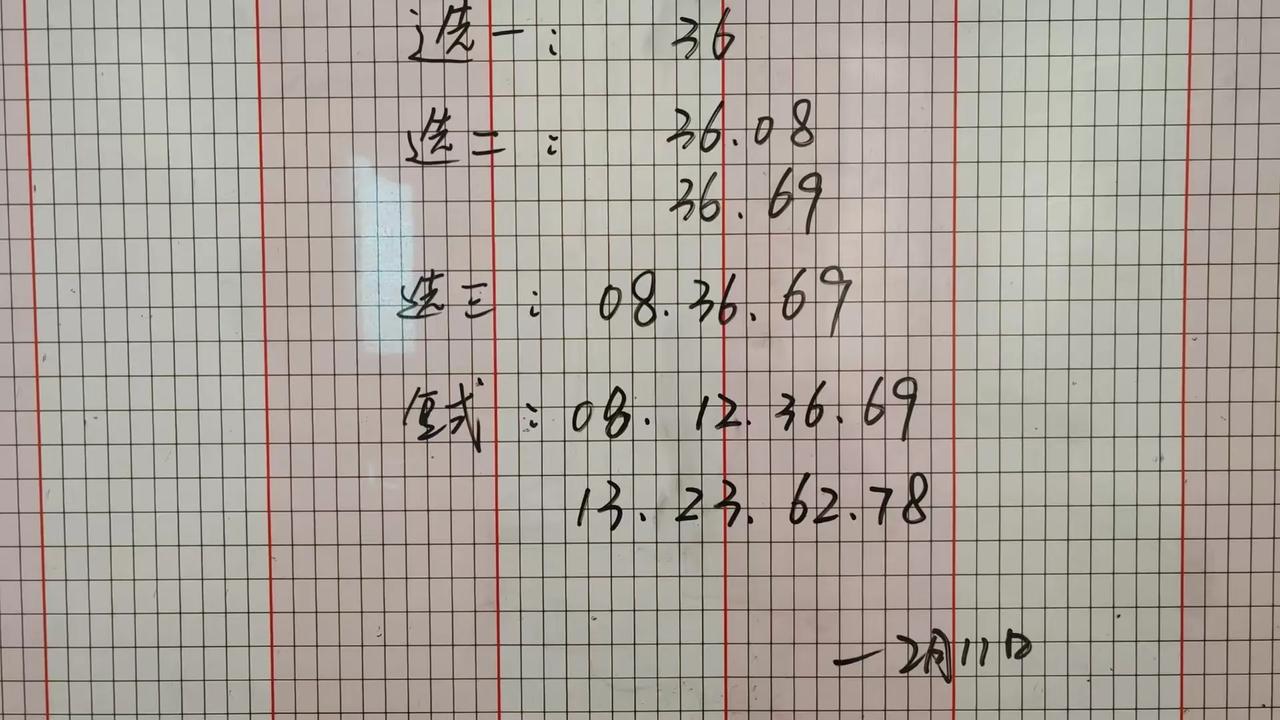 选一： 36
选二： 36.08
36.69
选三： 08.36.69
复式：08.12.36.69
13.23.62.78
—2月11日